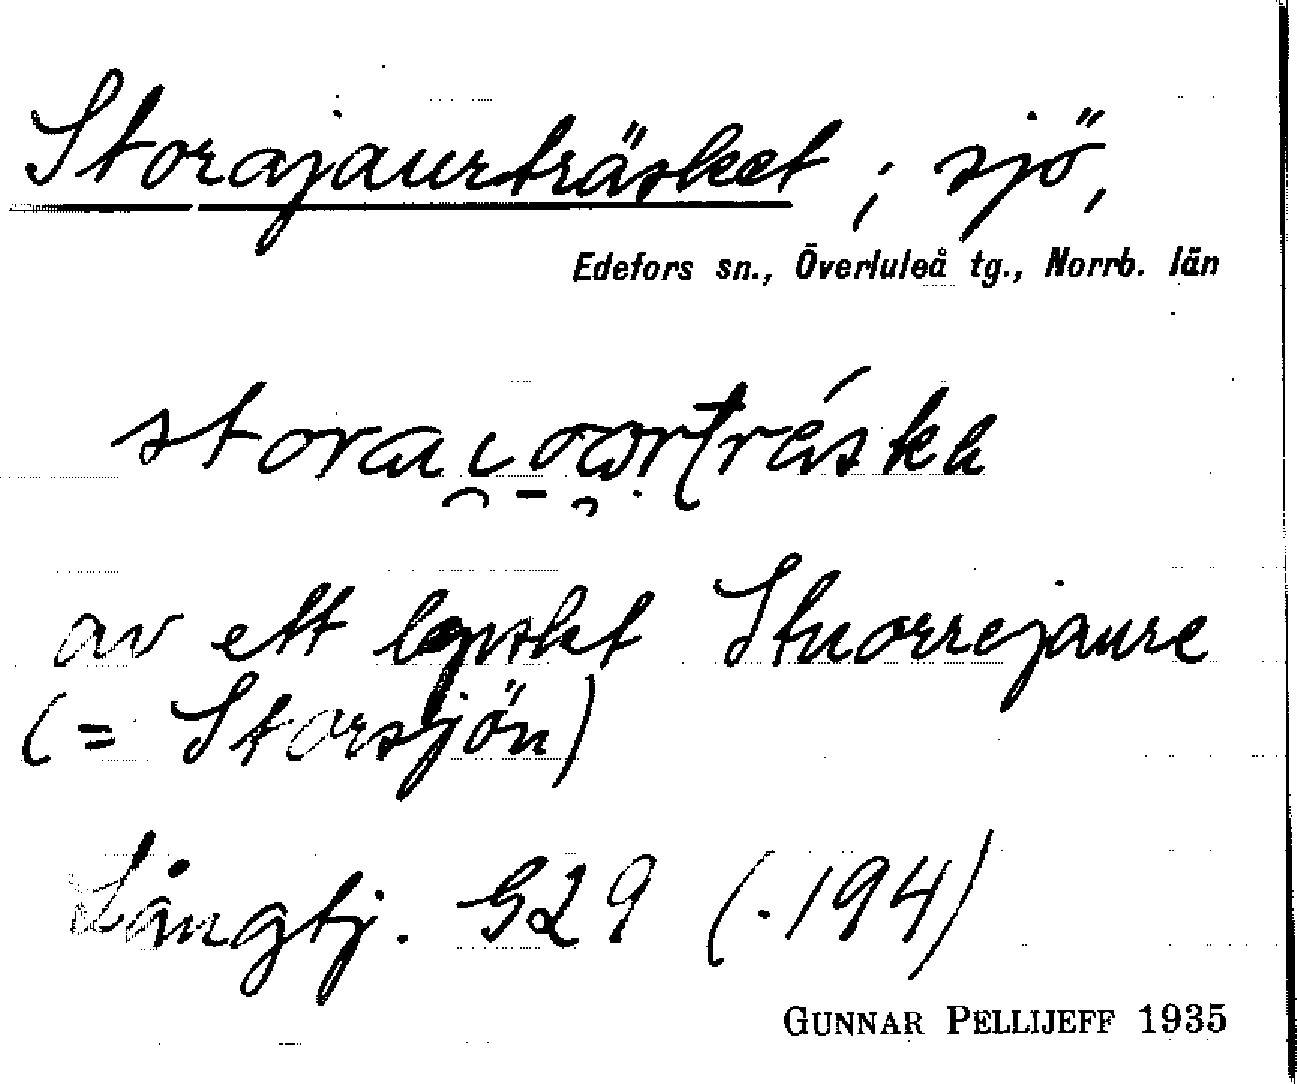 Storajaurträsket; sjö,
Edefors sn., Överluleå tg., Norrb. län
av ett lapskt Stuorrejaure
(= Storsjön)
Långtj. G29 (.194)
GUNNAR PELLIJEFF 1935